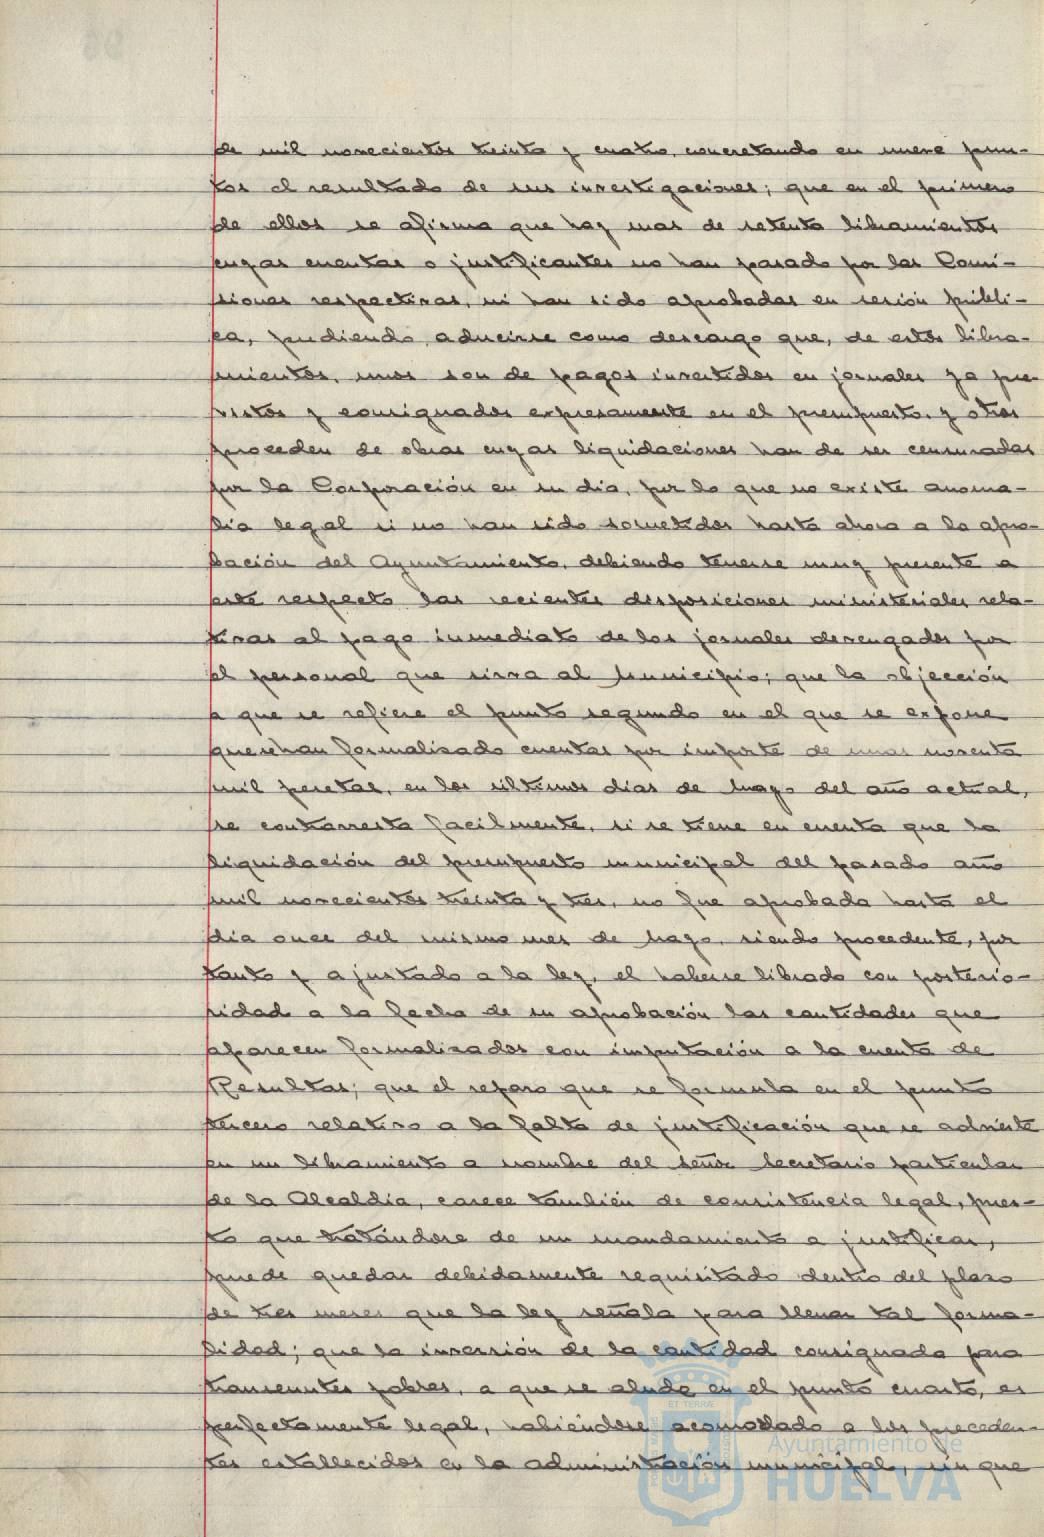 de mil novecientos treinta y cuatro, concretando en nueve pun-
tos el resultado de sus investigaciones; que en el primero
de ellos se afirma que hay mas de setenta libramientos
cuyas cuentas o justificantes no han pasado por las Comi-
siones respectivas, ni han sido aprobadas en sesión públi-
ca, pudiendo aducirse como descargo que, de estos libra-
mientos, unos son de pagos invertidos en jornales ya pre-
vistos y consignados expresamente en el presupuesto, y otros
proceden de obras cuyas liquidaciones han de ser censuradas
por la Corporación en su día, por lo que no existe anoma-
lía legal si no han sido sometidos hasta ahora a la apro-
bación del Ayuntamiento, debiendo tenerse muy presente a
este respecto las recientes disposiciones ministeriales rela-
tivas al pago inmediato de los jornales devengados por
el personal que sirva al Municipio; que la objección
a que se refiere el punto segundo en el que se expone
que se han formalizado cuentas por importe de unas noventa
mil pesetas, en los últimos días de Mayo del año actual,
se contrarresta facilmente, si se tiene en cuenta que la
liquidación del presupuesto municipal del pasado año
mil novecientos treinta y tres, no fue aprobada hasta el
día once del mismo mes de Mayo, siendo procedente, por
tanto y ajustado a la ley, el haberse librado con posterio-
ridad a la fecha de su aprobación las cantidades que
aparecen formalizados con imputación a la cuenta de
Resultas; que el reparo que se formula en el punto
tercero relativo a la falta de justificación que se advierte
en un libramiento a nombre del señor Secretario particular
de la Alcaldía, carece también de consistencia legal, pues-
to que tratándose de un mandamiento a justificar,
puede quedar debidamente requisitado dentro del plazo
de tres meses que la ley señala para llenar tal forma-
lidad; que la inversión de la cantidad consignada para
transeuntes pobres, a que se alude en el punto cuarto, es
perfectamente legal, habiéndose acomodado a los preceden-
tes establecidos en la administración municipal, sin que
Ayuntamiento de
HUELVA